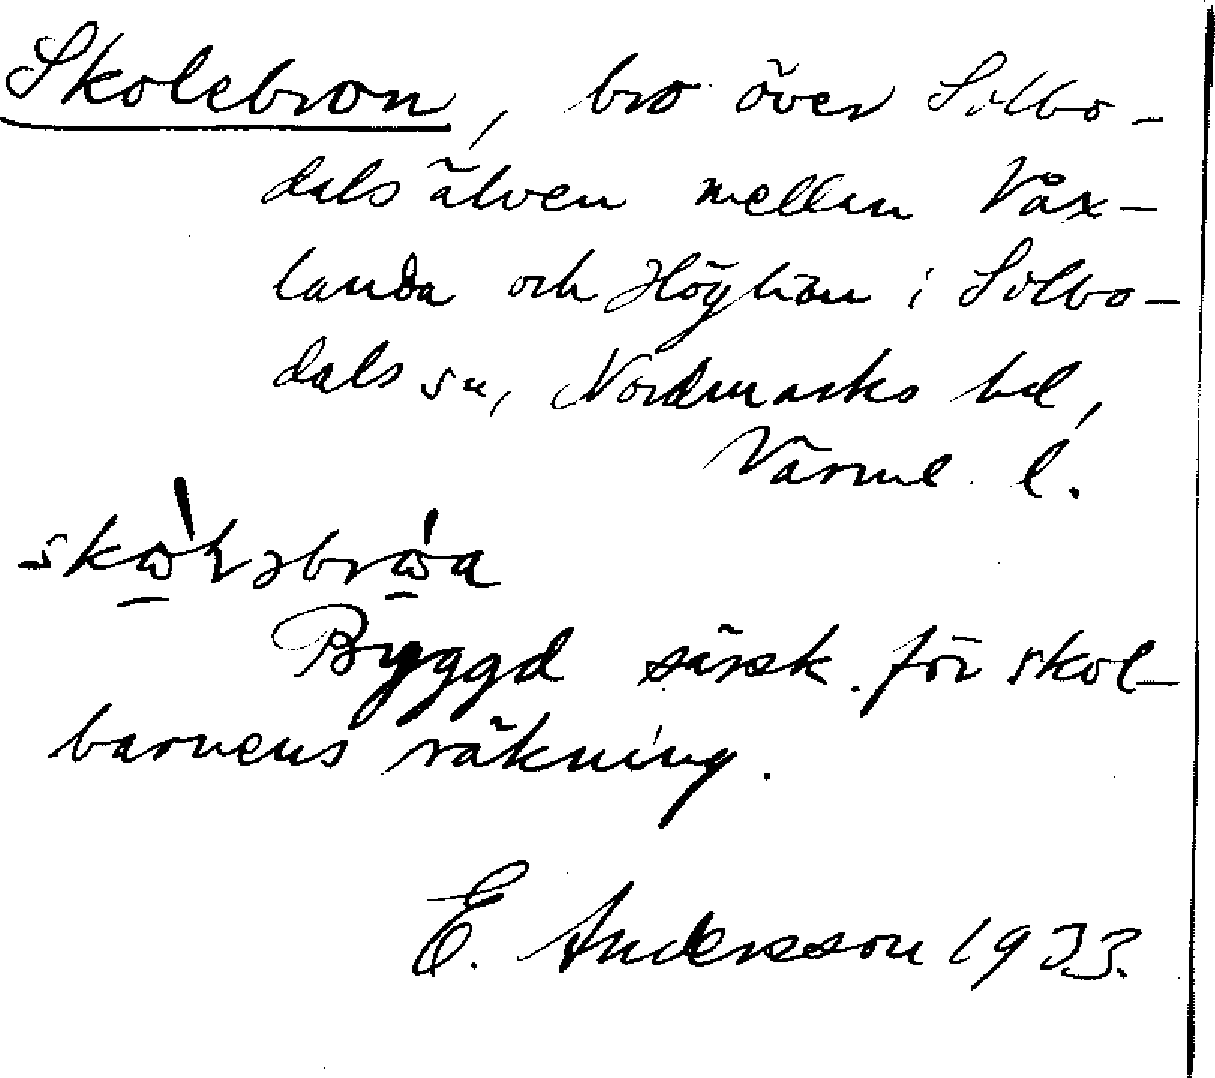 Skolebron, bro över Silbo-
dalsälven mellan Våx-
landa och Högtian i Silbo-
dals sn, Nordmarks hd,
Värml. l.
Byggd särsk. för skol-
barnens räkning.
E. Andersson 1933.